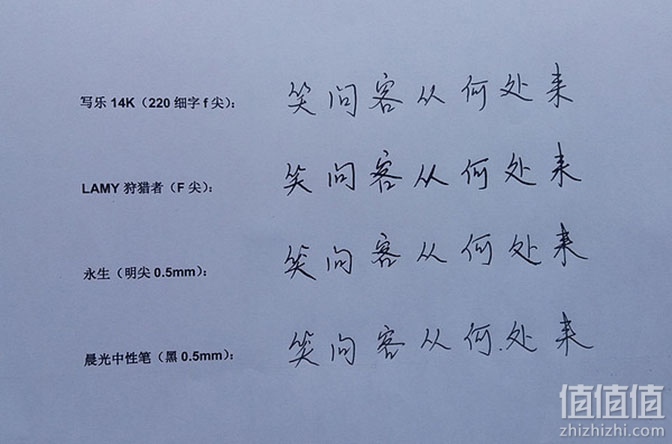 写乐 14K（220 细字 f 尖）： 笑问客从何处来
LAMY 狩猎者（F 尖）： 笑问客从何处来
永生（明尖 0.5mm）： 笑问客从何处来
晨光中性笔（黑 0.5mm）： 笑问客从何处来
值值值
zhizhizhi.com